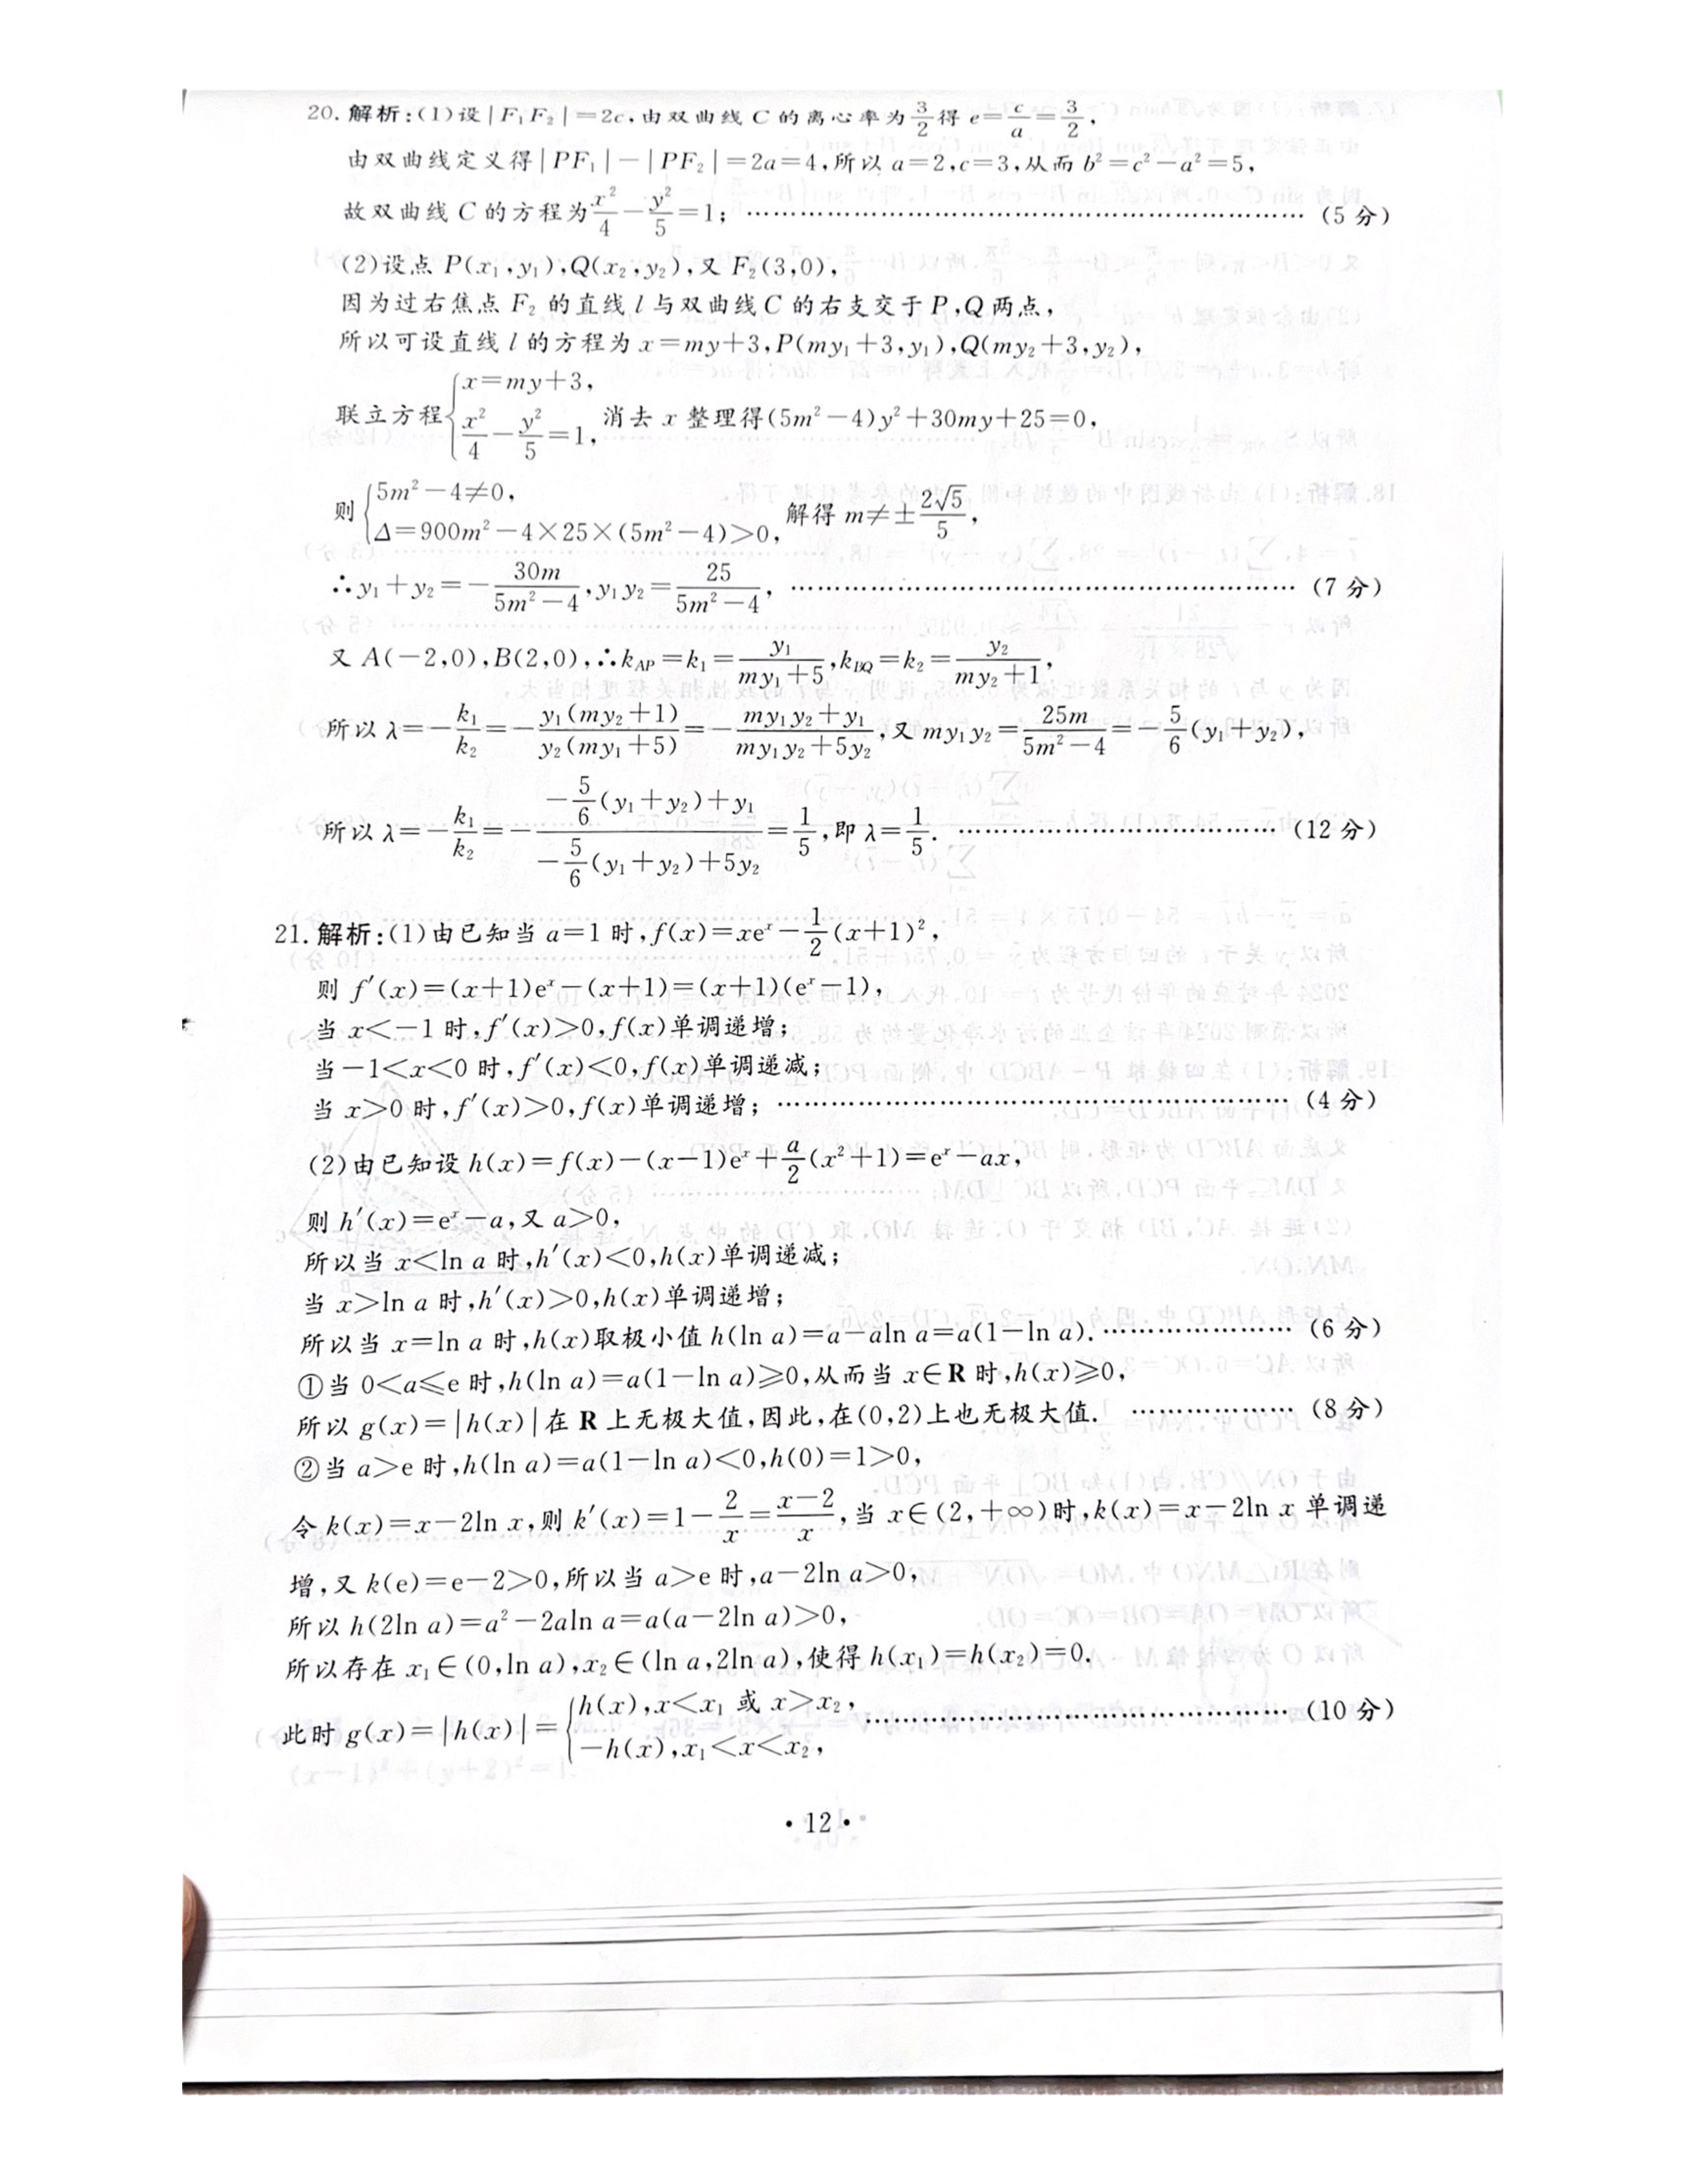 20. 解析:(1)设|F₁F₂|=2c,由双曲线 C 的离心率为 3/2 得 e=c/a=3/2,
由双曲线定义得|PF₁|-|PF₂|=2a=4,所以 a=2,c=3,从而 b²=c²-a²=5,
故双曲线 C 的方程为 x²/4-y²/5=1; …………………………………………………… (5 分)
(2)设点 P(x₁,y₁),Q(x₂,y₂),又 F₂(3,0),
因为过右焦点 F₂ 的直线 l 与双曲线 C 的右支交于 P,Q 两点,
所以可设直线 l 的方程为 x=my+3,P(my₁+3,y₁),Q(my₂+3,y₂),
联立方程{x=my+3, x²/4-y²/5=1, 消去 x 整理得(5m²-4)y²+30my+25=0,
则{5m²-4≠0, Δ=900m²-4×25×(5m²-4)>0, 解得 m≠±2√5/5,
∴y₁+y₂=-30m/(5m²-4),y₁y₂=25/(5m²-4), …………………………………………………… (7 分)
又 A(-2,0),B(2,0),∴k_AP=k₁=y₁/(my₁+5),k_BQ=k₂=y₂/(my₂+1),
所以 λ=-k₁/k₂=-y₁(my₂+1)/y₂(my₁+5)=-(my₁y₂+y₁)/(my₁y₂+5y₂),又 my₁y₂=25m/(5m²-4)=-5/6(y₁+y₂),
所以 λ=-k₁/k₂=-(-5/6(y₁+y₂)+y₁)/(-5/6(y₁+y₂)+5y₂)=1/5,即 λ=1/5. ……………………………… (12 分)
21. 解析:(1)由已知当 a=1 时,f(x)=xeˣ-1/2(x+1)²,
则 f′(x)=(x+1)eˣ-(x+1)=(x+1)(eˣ-1),
当 x<-1 时,f′(x)>0,f(x)单调递增;
当-1<x<0 时,f′(x)<0,f(x)单调递减;
当 x>0 时,f′(x)>0,f(x)单调递增; …………………………………………………… (4 分)
(2)由已知设 h(x)=f(x)-(x-1)eˣ+a/2(x²+1)=eˣ-ax,
则 h′(x)=eˣ-a,又 a>0,
所以当 x<ln a 时,h′(x)<0,h(x)单调递减;
当 x>ln a 时,h′(x)>0,h(x)单调递增;
所以当 x=ln a 时,h(x)取极小值 h(ln a)=a-aln a=a(1-ln a). ………………… (6 分)
①当 0<a≤e 时,h(ln a)=a(1-ln a)≥0,从而当 x∈R 时,h(x)≥0,
所以 g(x)=|h(x)|在 R 上无极大值,因此,在(0,2)上也无极大值. ………………… (8 分)
②当 a>e 时,h(ln a)=a(1-ln a)<0,h(0)=1>0,
令 k(x)=x-2ln x,则 k′(x)=1-2/x=(x-2)/x,当 x∈(2,+∞)时,k(x)=x-2ln x 单调递
增,又 k(e)=e-2>0,所以当 a>e 时,a-2ln a>0,
所以 h(2ln a)=a²-2aln a=a(a-2ln a)>0,
所以存在 x₁∈(0,ln a),x₂∈(ln a,2ln a),使得 h(x₁)=h(x₂)=0.
此时 g(x)=|h(x)|={h(x),x<x₁ 或 x>x₂, -h(x),x₁<x<x₂, ………………………………………… (10 分)
• 12 •